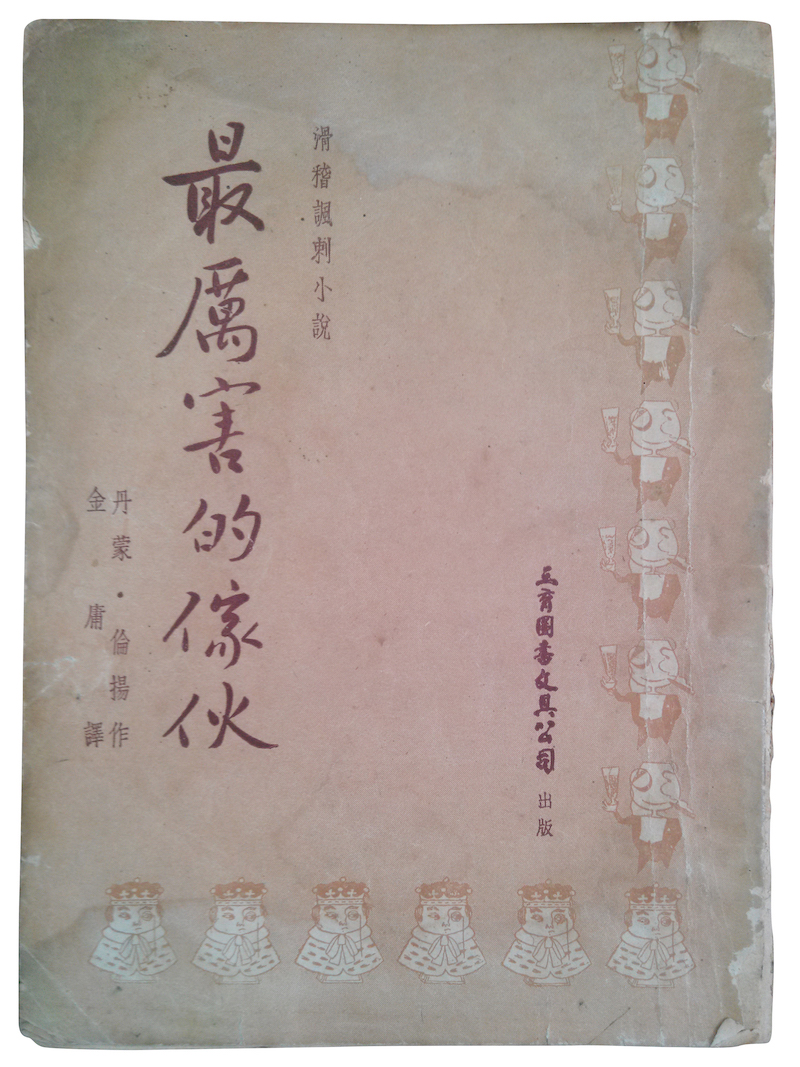 三育圖書文具公司 出版
滑稽諷刺小說
最厲害的傢伙
丹蒙·倫揚作
金庸譯